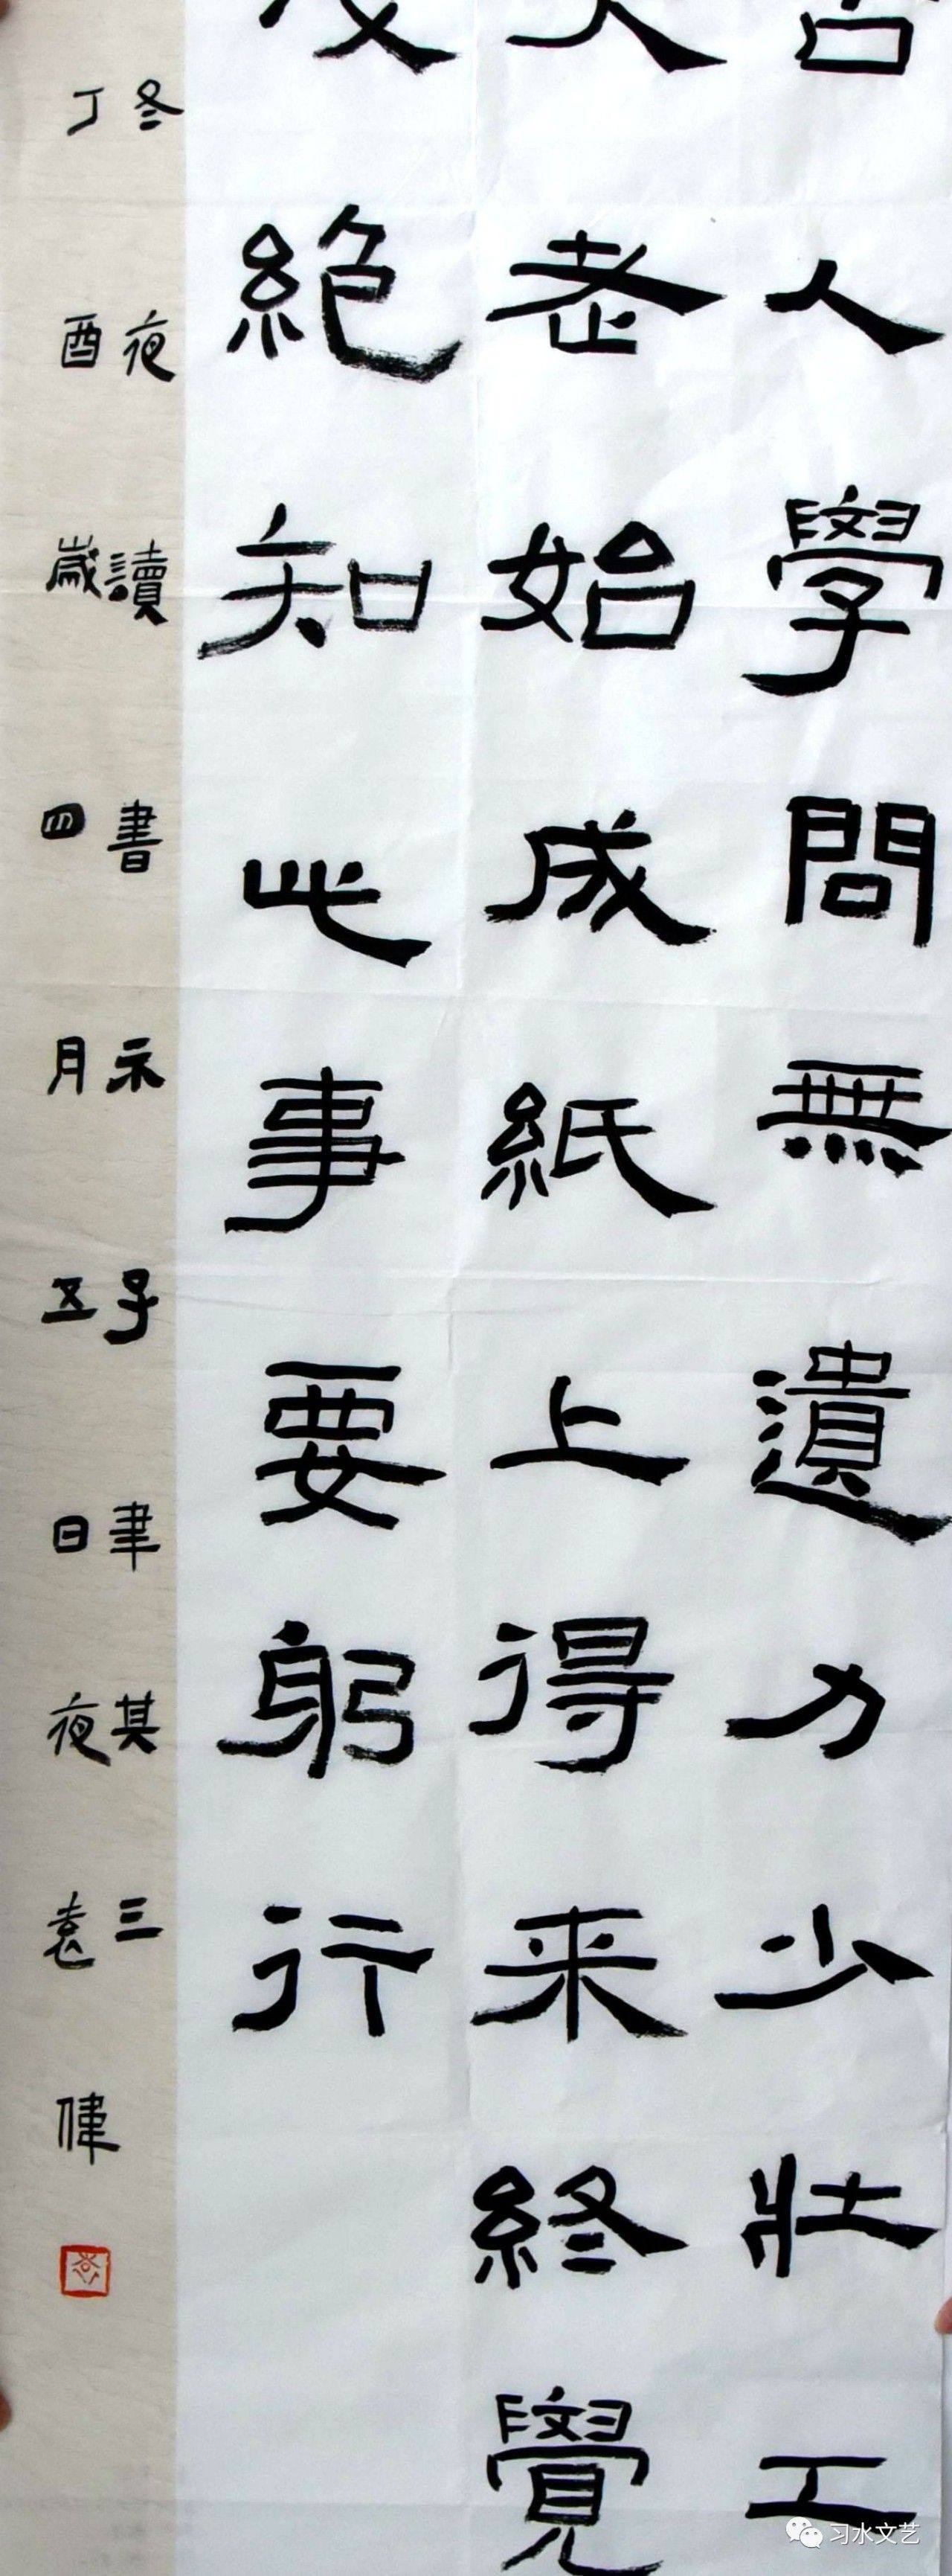 古人學問無遺力少壯工
夫老始成紙上得来終覺
淺絕知此事要躬行
冬夜讀書示子聿其三
丁酉歲四月五日夜袁
习水文艺